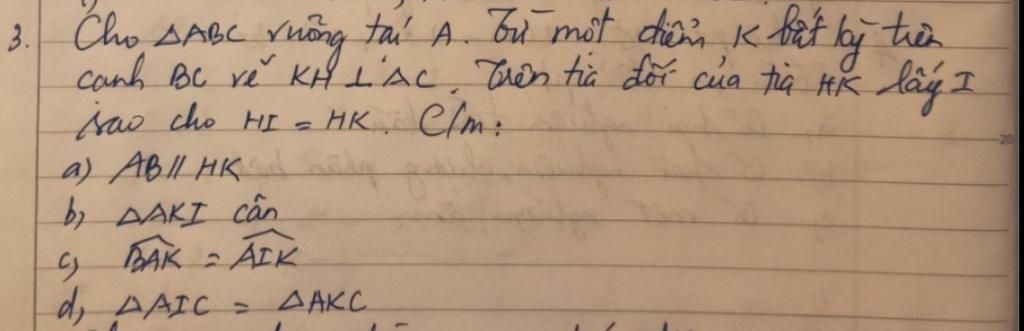 3. Cho △ABC vuông tại A. Từ một điểm K bất kỳ trên
cạnh BC vẽ KH ⊥ AC. Trên tia đối của tia HK lấy I
sao cho HI = HK. C/m:
a) AB // HK
b) △AKI cân
c) \widehat{BAK} = \widehat{AIK}
d) △AIC = △AKC